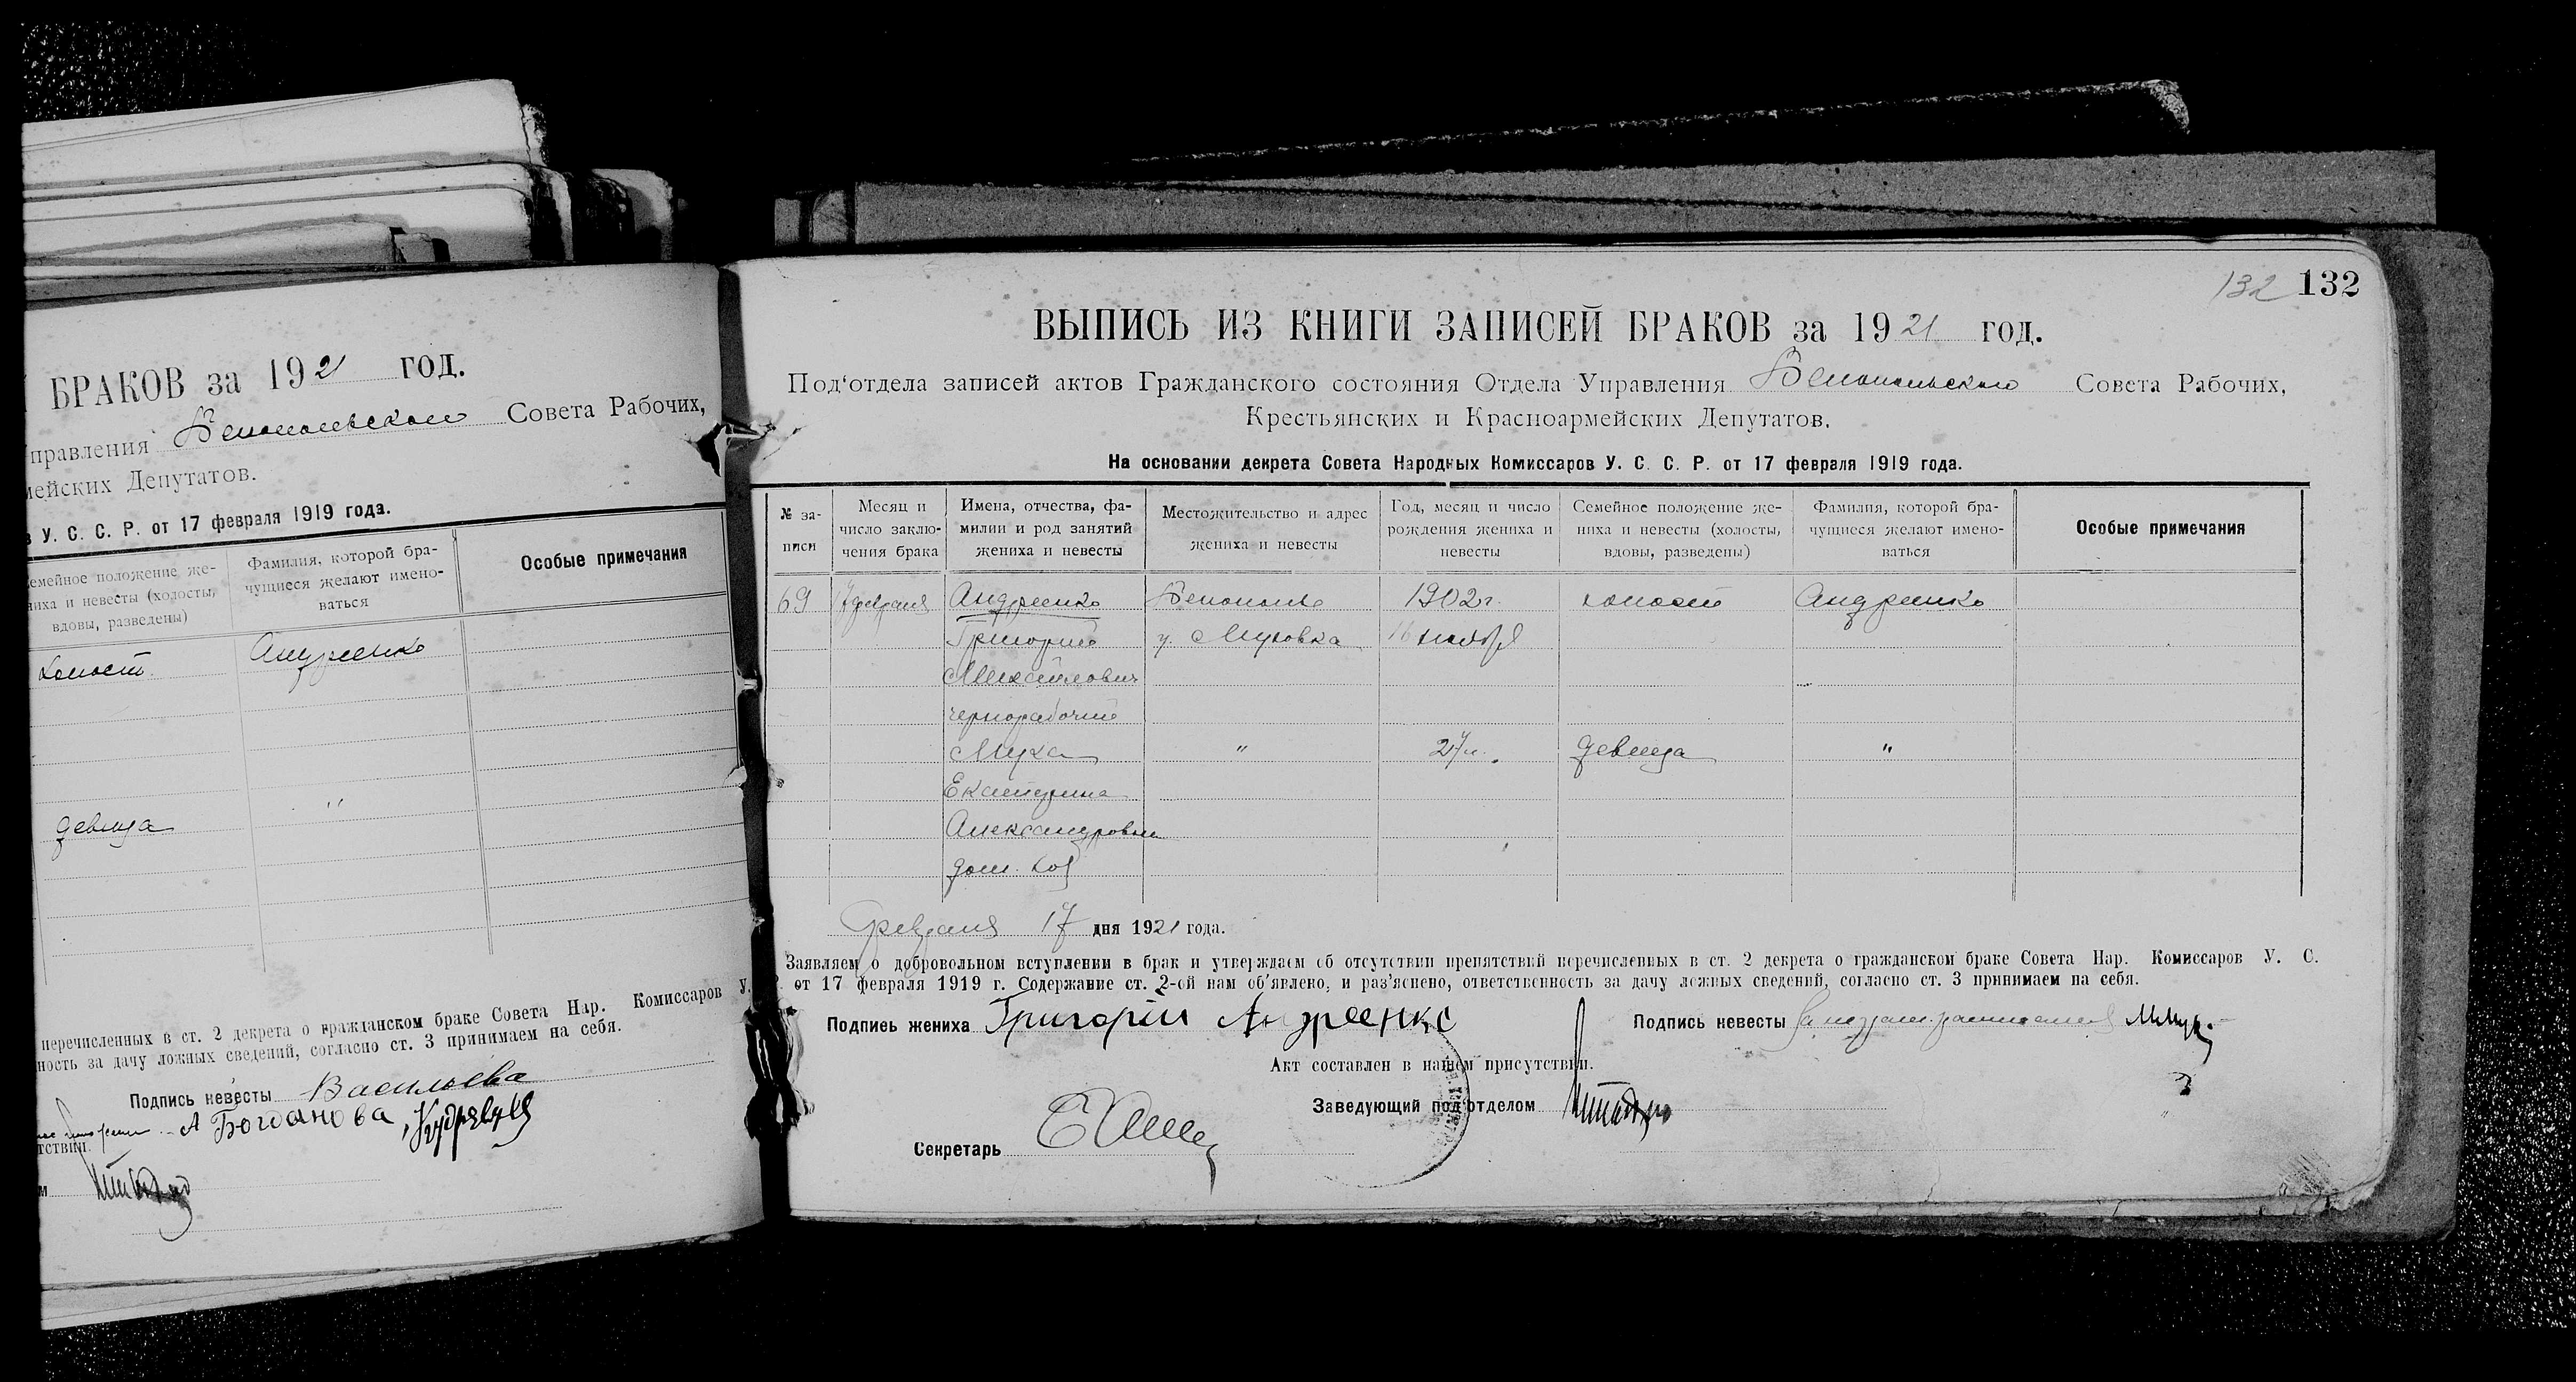 БРАКОВ за 1921 год.
Управления Белопольского Совета Рабочих,
мейских Депутатов.
в У. С. С. Р. от 17 февраля 1919 года.
Семейное положение же-
ниха и невесты (холосты,
вдовы, разведены)
Фамилия, которой бра-
чущиеся желают имено-
ваться
Особые примечания
холост Андреенко
девица "
перечисленных в ст. 2 декрета о гражданском браке Совета Нар. Комиссаров У.
ность за дачу ложных сведений, согласно ст. 3 принимаем на себя.
Подпись невесты Васильева
А Богданова,
тствии.
м
132 132
ВЫПИСЬ ИЗ КНИГИ ЗАПИСЕЙ БРАКОВ за 1921 год.
Под‘отдела записей актов Гражданского состояния Отдела Управления Белопольского Совета Рабочих,
Крестьянских и Красноармейских Депутатов.
На основании декрета Совета Народных Комиссаров У. С. С. Р. от 17 февраля 1919 года.
№ за-
писи
Месяц и
число заклю-
чения брака
Имена, отчества, фа-
милии и род занятий
жениха и невесты
Местожительство и адрес
жениха и невесты
Год, месяц и число
рождения жениха и
невесты
Семейное положение же-
ниха и невесты (холосты,
вдовы, разведены)
Фамилия, которой бра-
чущиеся желают имено-
ваться
Особые примечания
69 17 февраля Андреенко Белополье 1902 г. холост Андреенко
Григорий у. Муховка 16 ноября
Михайлович
чернорабочий
Муха " 27 л. девица "
Екатерина
Александровна
дом. хоз
Февраля 17 дня 1921 года.
Заявляем о добровольном вступлении в брак и утверждаем об отсутствии препятствий перечисленных в ст. 2 декрета о гражданском браке Совета Нар. Комиссаров У. С.
от 17 февраля 1919 г. Содержание ст. 2-ой нам об‘явлено, и раз‘яснено, ответственность за дачу ложных сведений, согласно ст. 3 принимаем на себя.
Подпись жениха Григорій Андреенко Подпись невесты
Акт составлен в нашем присутствии.
Заведующий под‘отделом
Секретарь